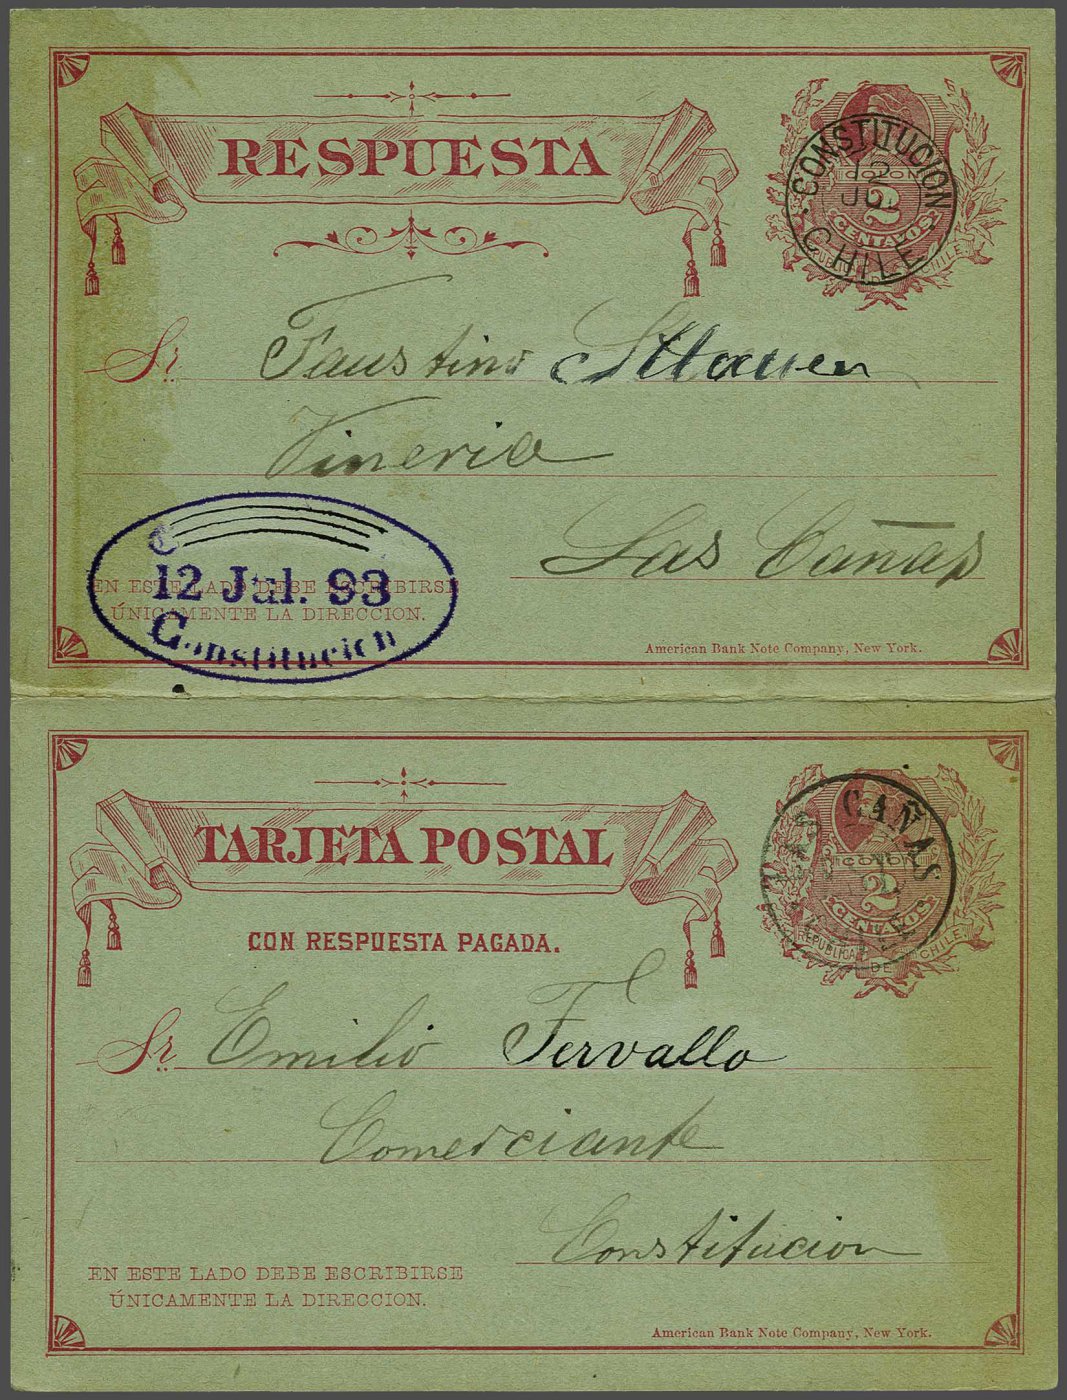 RESPUESTA
CONSTITUCION
12
JUL
CHILE
COLON
2
CENTAVOS
CHILE
Sr. Faustino
Vineria
Las Cañas
12 Jul. 93
Constitucion
EN ESTE LADO DEBE ESCRIBIRSE
ÚNICAMENTE LA DIRECCION.
American Bank Note Company, New York.
TARJETA POSTAL
CON RESPUESTA PAGADA.
LAS CAÑAS
COLON
2
CENTAVOS
REPUBLICA DE CHILE
Sr. Emilio Fervallo
Comerciante
Constitucion
EN ESTE LADO DEBE ESCRIBIRSE
ÚNICAMENTE LA DIRECCION.
American Bank Note Company, New York.